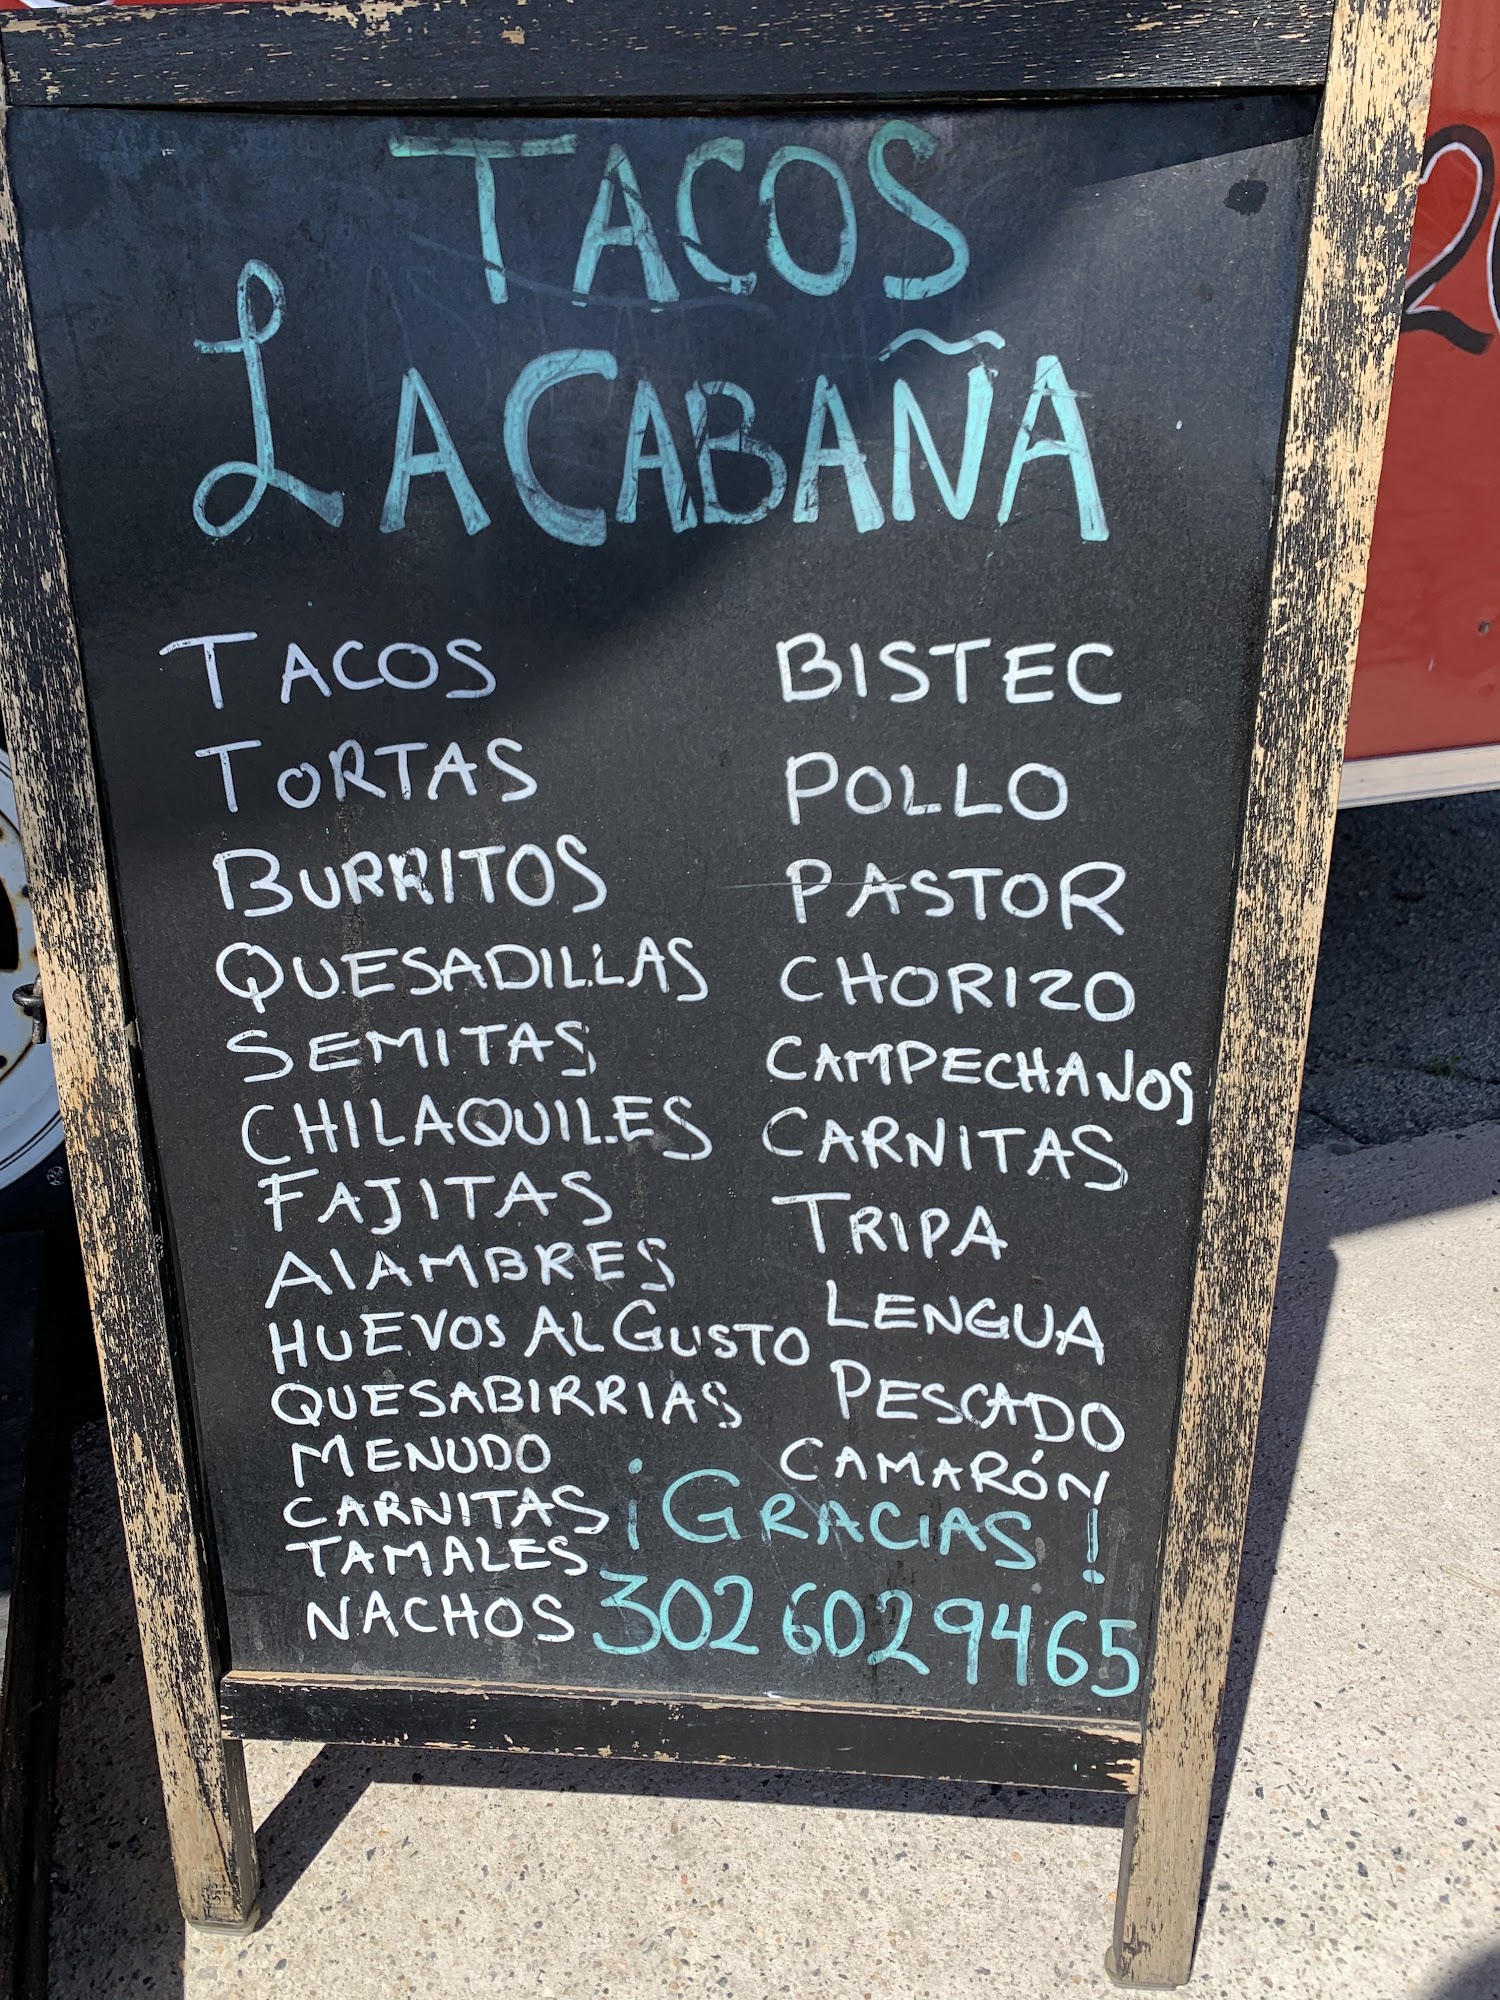 TACOS
LA CABAÑA
TACOS
TORTAS
BURRITOS
QUESADILLAS
SEMITAS
CHILAQUILES
FAJITAS
AlAMBRES
HUEVOS AL GUSTO
QUESABIRRIAS
MENUDO
CARNITAS
TAMALES
NACHOS
BISTEC
POLLO
PASTOR
CHORIZO
CAMPECHANOS
CARNITAS
TRIPA
LENGUA
PESCADO
CAMARÓN
¡GRACIAS!
302 602 9465
2